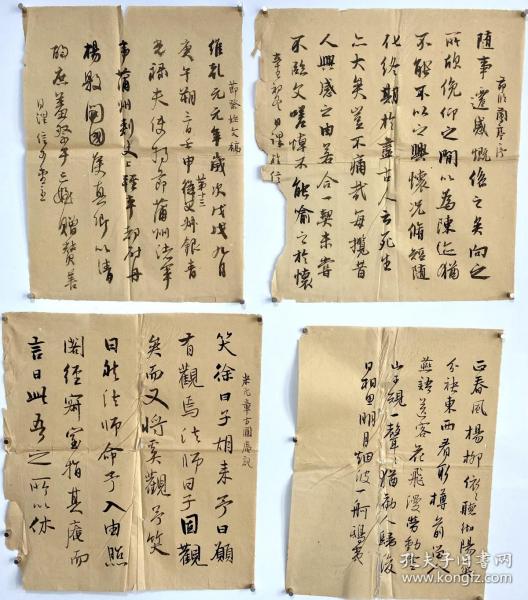 節祭姪文稿
維乾元元年歲次戊戌九月
庚午朔三日壬申第十三銀青
光祿夫使持節蒲州諸軍
事蒲州刺史上輕車都尉丹
楊縣開國侯真卿以清
酌庶羞祭于亡姪贈贊善
日澤信手書之
蘭亭序
隨事遷感慨係之矣向之
所欣俛仰之間以為陳迹猶
不能不以之興懷況脩短隨
化終期於盡古人云死生
亦大矣豈不痛哉每攬昔
人興感之由若合一契未嘗
不臨文嗟悼不能喻之於懷
日澤
米元章方圓庵記
笑徐曰子胡來予曰願
有觀焉法師曰子固觀
矣而又將奚觀予笑
曰然法師命予入由照
閣經寢室指其庵而
言曰此吾之所以休
正春風楊柳依依聽徹陽關
分袂東西看取樽前
花飛漫勞
山子規一聲聲猶勸人歸後
日相思明月烟波一舸鴟夷
孔夫子旧书网
www.kongfz.com